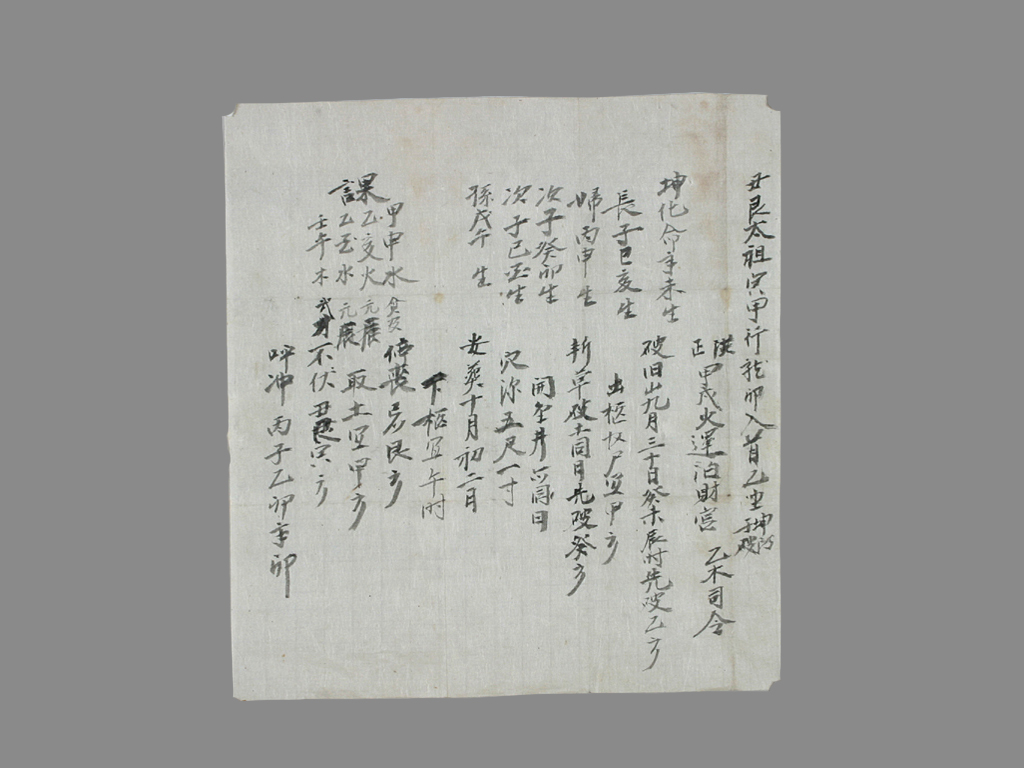 丑艮太祖寅甲行龍卯入首乙坐坤破
洪甲戌火運泊財宮 乙木司令
正
坤化命辛未生
破旧山九月三十日癸未辰时先破乙方
長子己亥生
出柩 宜甲方
婦丙申生
新草破土同日先破癸方
次子癸卯生
開金井 同日
次子己丑生
穴深五尺一寸
孫戊午 生
安葬十月初二日
下柩宜午时
課
甲申水 貪
乙亥火 元
乙丑水 元
壬午木 武
停喪忌艮方
取土宜甲方
不伏丑艮寅方
呼冲 丙子乙卯辛卯